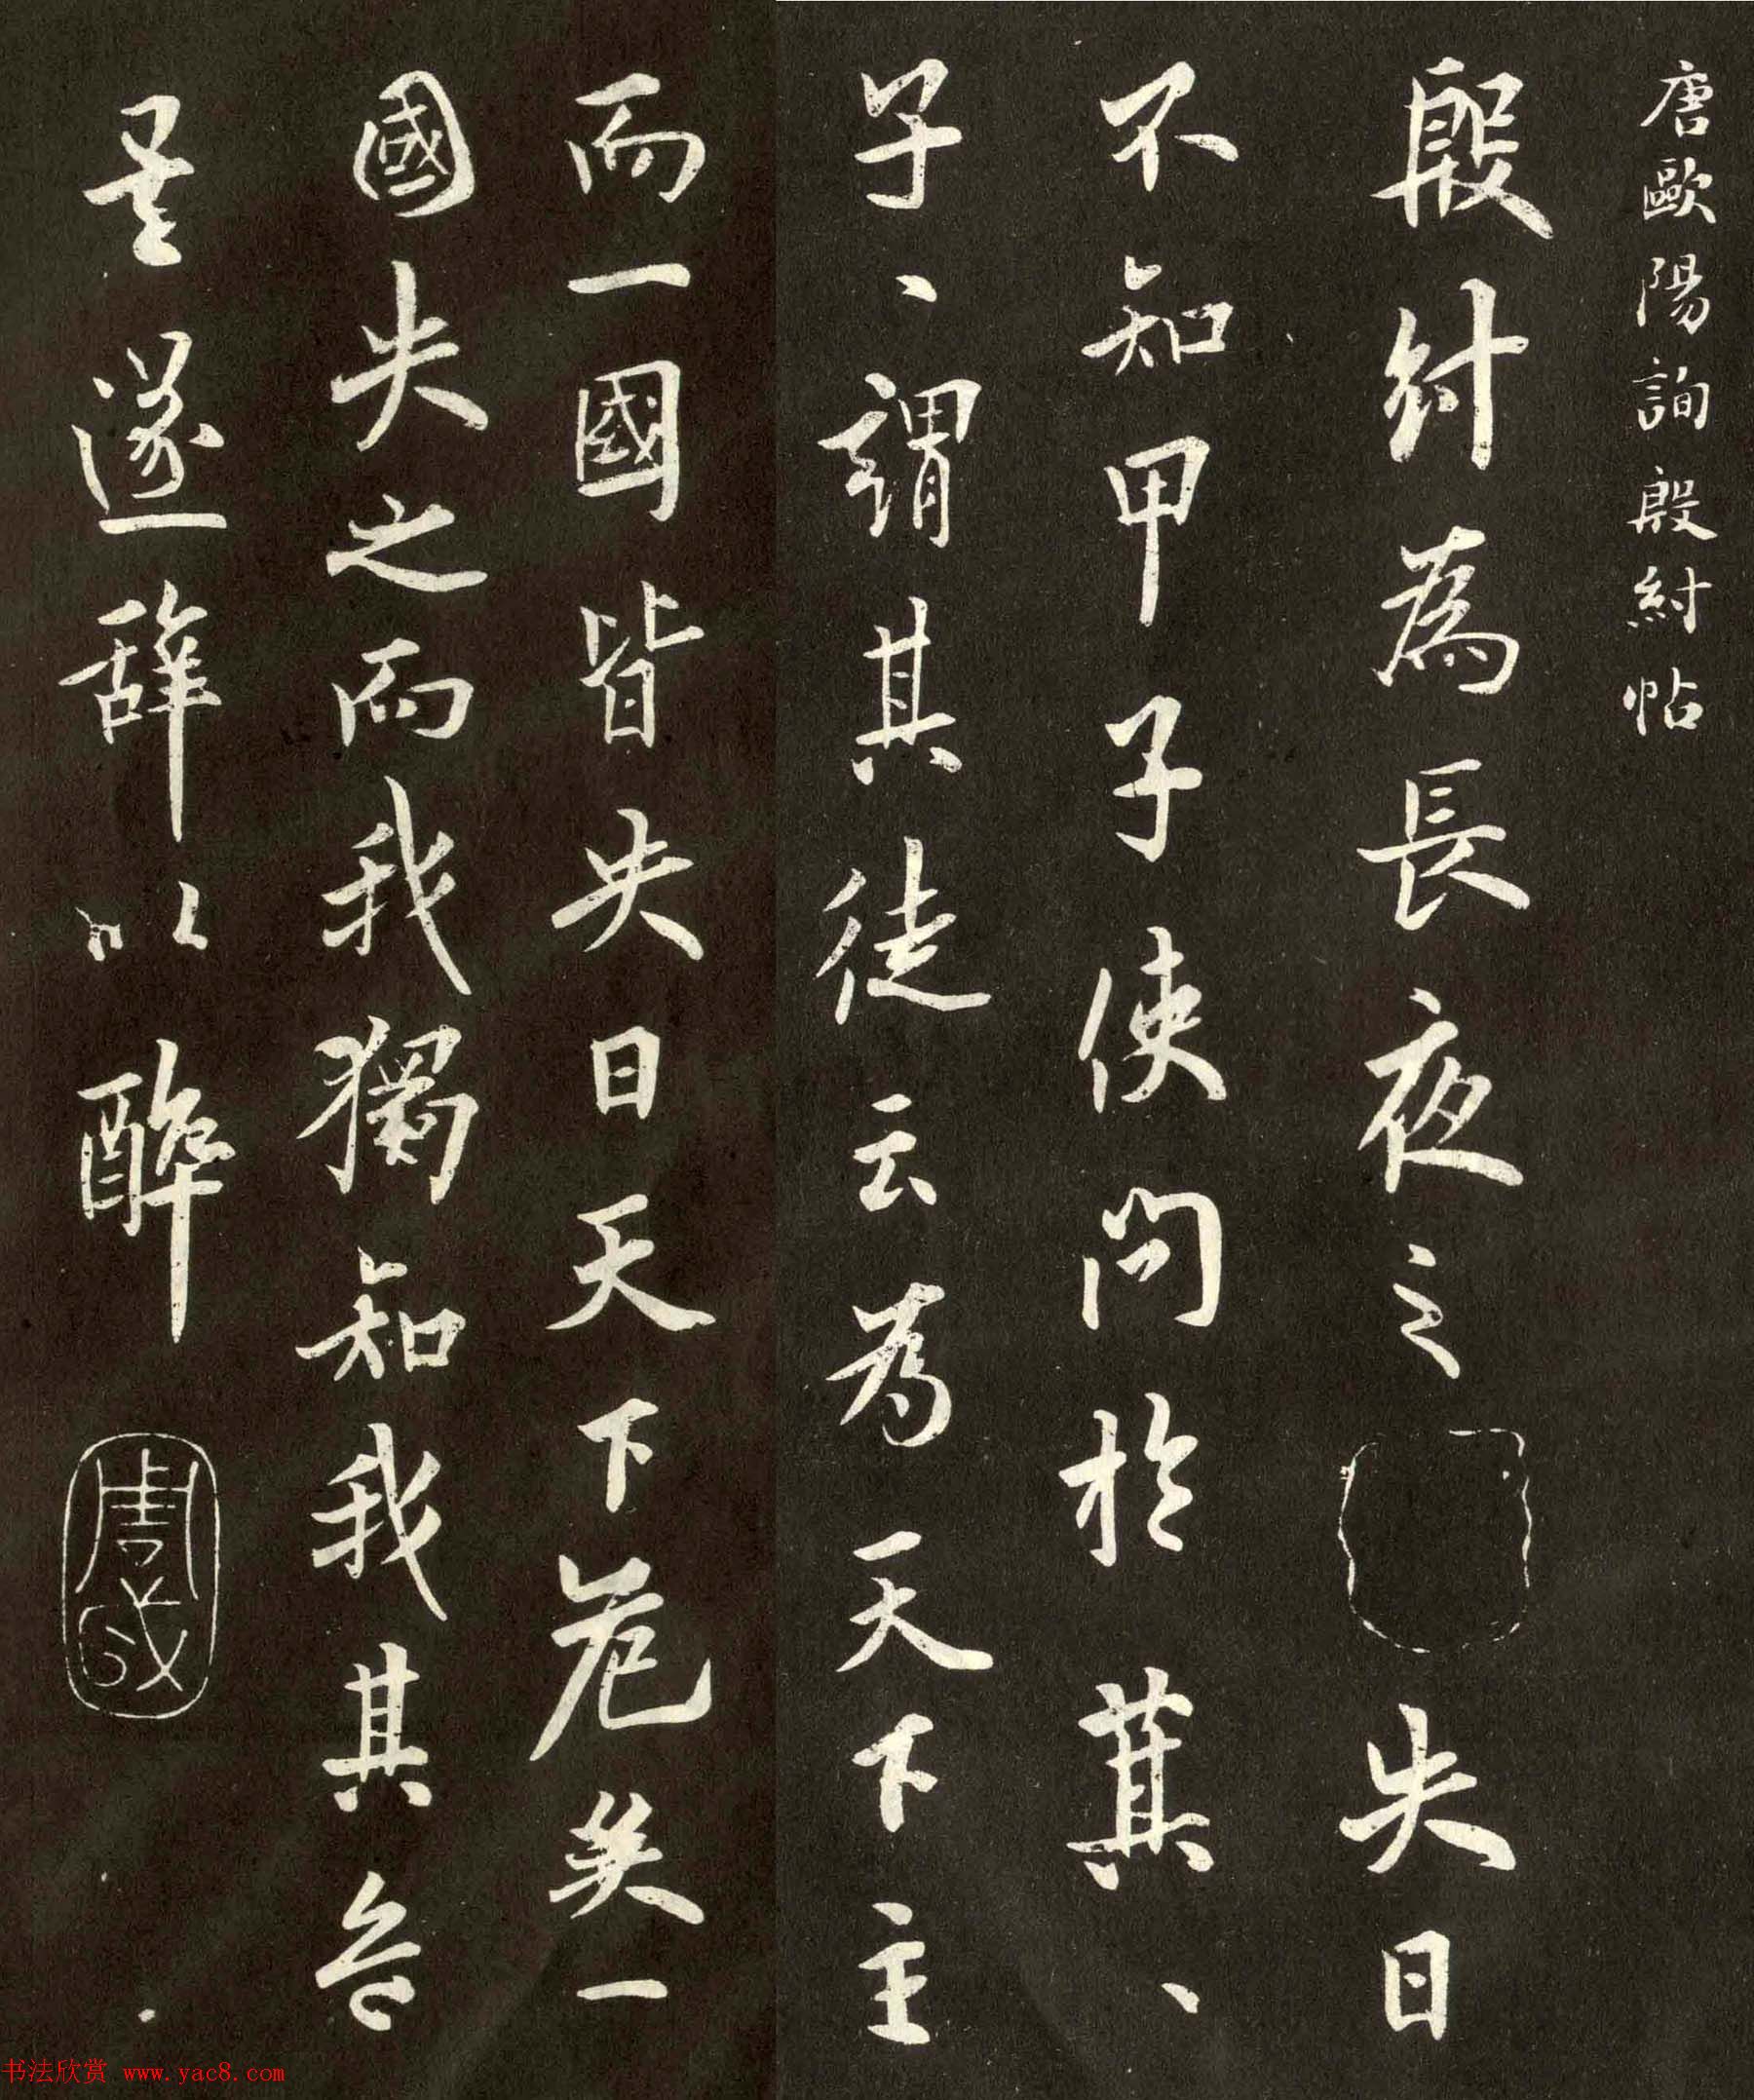 唐歐陽詢殷紂帖
殷紂為長夜之失日
不知甲子使問於箕、
子、謂其徒云為天下主
而一國皆失日天下危矣一
國失之而我獨知我其危
矣遂辞以醉
书法欣赏 www.yac8.com